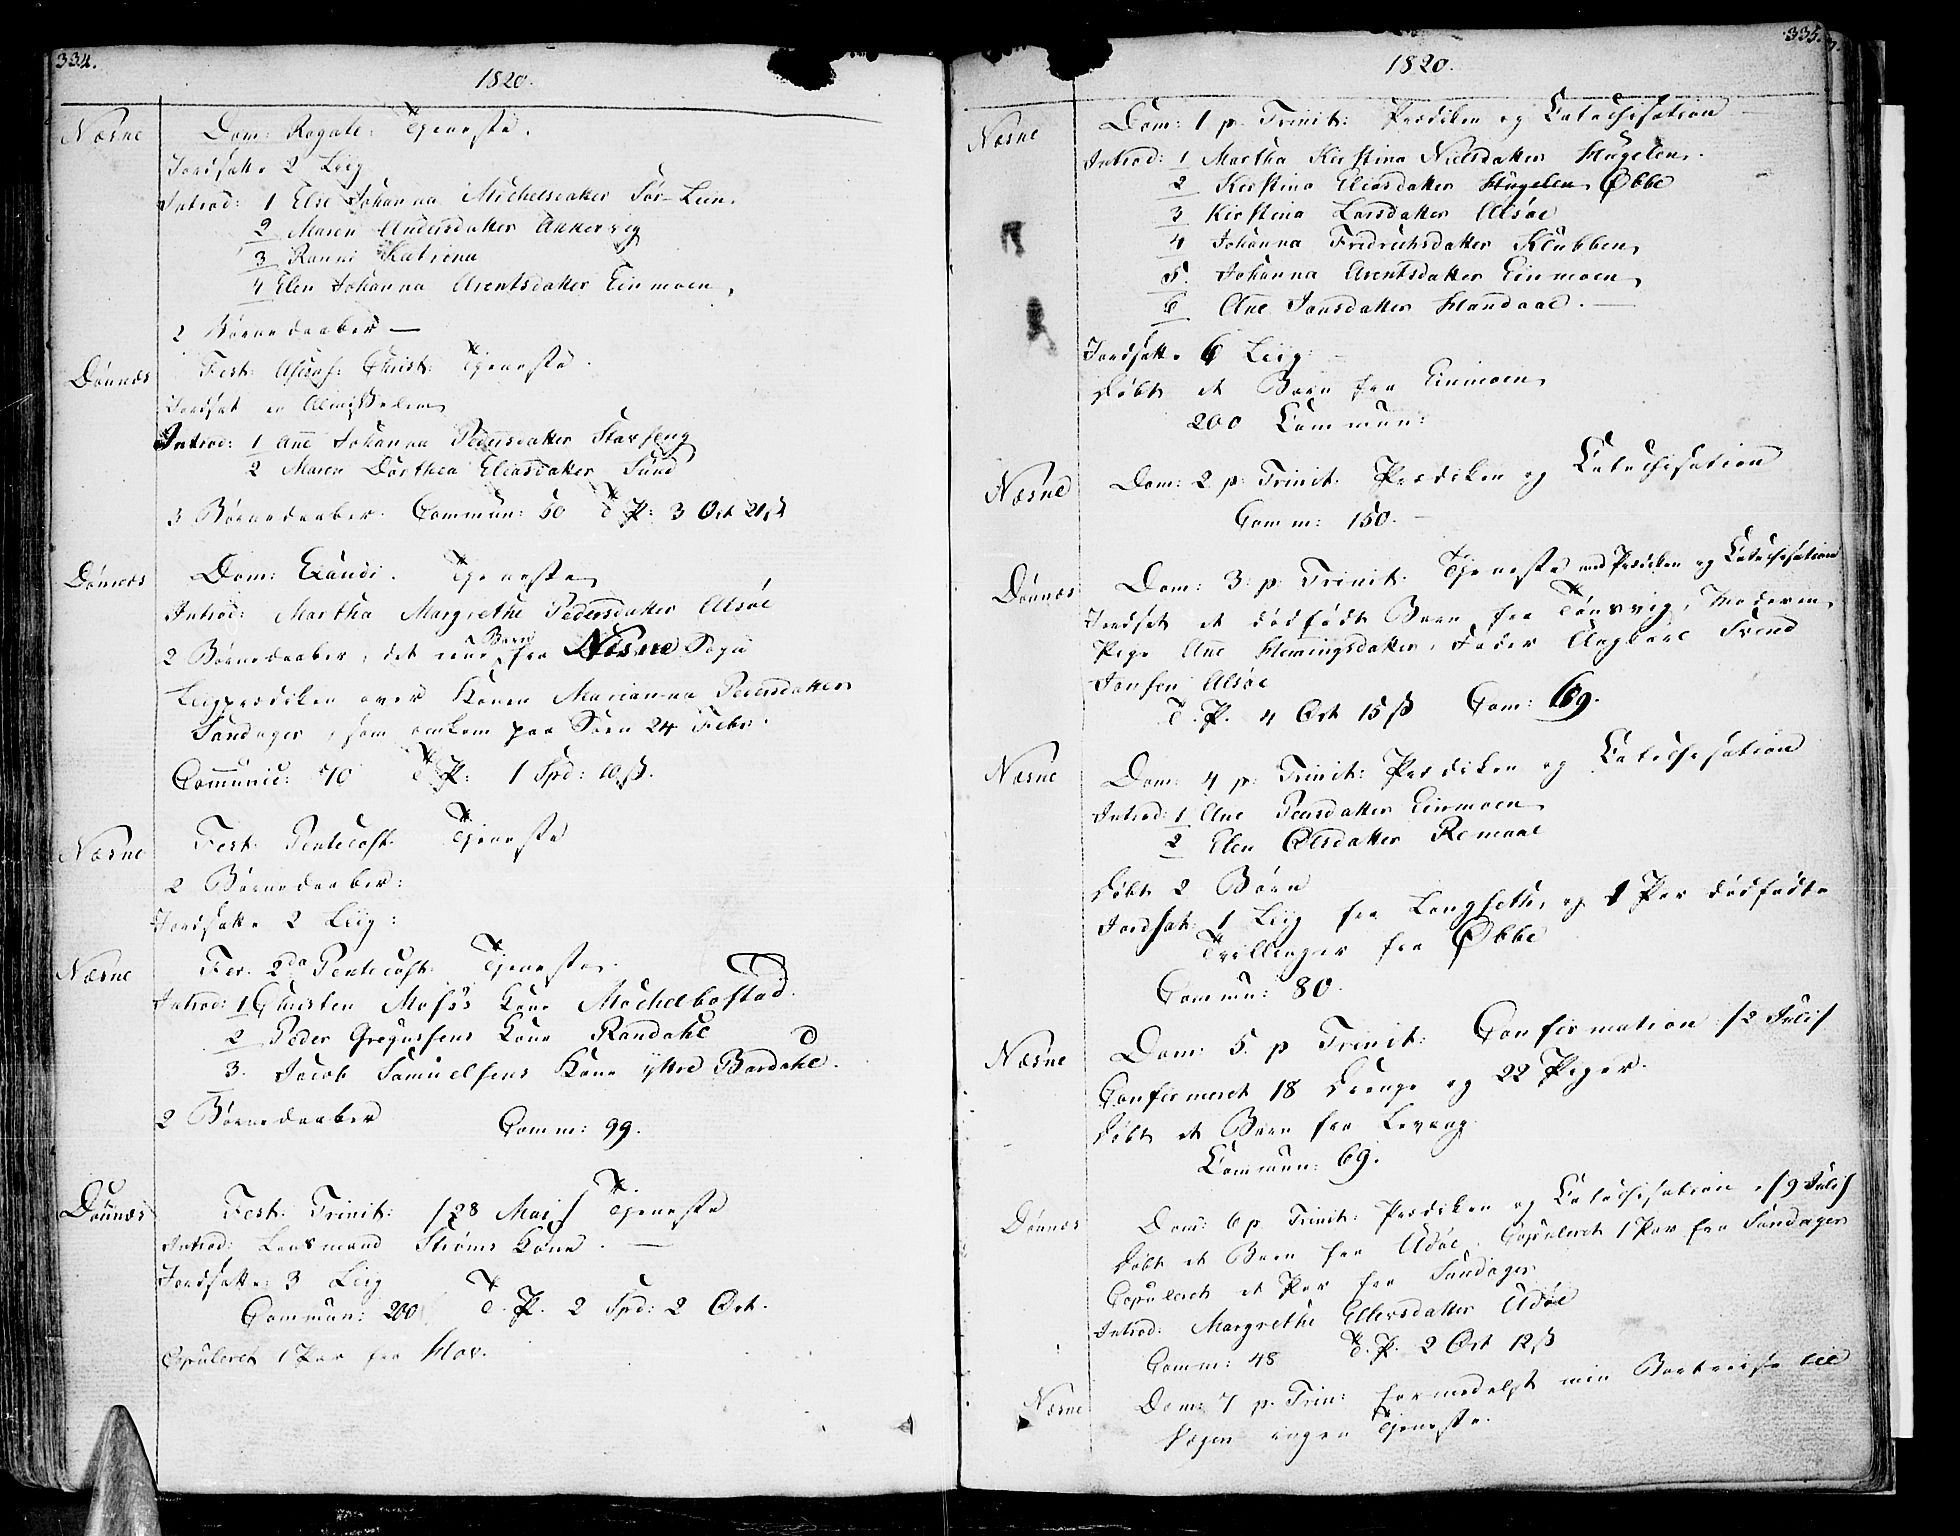 334.
1820.
Næsne Dom: Rogate: Tjeneste.
Jordsatte 2 Liig
Introd: 1 Else Johanna Michelsdatter Sør-Lein.
2 Maren Andersdatter Ankervig
3 Ranni Katrina
4 Elen Johanna Arentsdatter Einmoen,
2 Børnedaaber —
Dönnæs Fest: Ascens: Christ: Tjeneste.
Jordsat en Almisselem
Introd: 1 Ane Johanna Pedersdatter Starseng
2 Maren Dorthea Eliasdatter Sund
3 Børnedaaber. Commun: 50 T. P: 3 Ort 21 ß
Dönnæs Dom: Exaudi. Tjeneste
Introd: Martha Margrethe Pedersdatter Alsöe
2 Børnedaaber, det ene Barn fra Næsne Sogn
Liigprædiken over Konen Marianna Pedersdatter
Sandager, som omkom paa Søen 24 Febr.
Communic: 70 T. P: 1 Spd: 10 ß.
Næsne Fest. Pentecost. Tjeneste
2 Børnedaaber:
Jordsatte 2 Liig:
Næsne Fer. 2da Pentecost. Tjeneste.
Introd: 1 Christen Mosis Kone Michelbostad.
2 Peder Gregussens Kone Randahl
3. Jacob Samuelsens Kone yttre Bardahl.
2 Børnedaaber Comm: 99.
Dönnæs Fest. Trinit: /28 Mai/ Tjeneste
Introd: Lensmand Strøms Kone. —
Jordsatte: 3 Liig
Commun: 200 T. P. 2 Spd: 2 Ort.
Copuleret 1 Par fra Hov.
335.
1820.
Næsne Dom: 1 p. Trinit: Prædiken og Catechisation
Introd: 1 Martha Kirstina Nielsdatter Hugelen.
2 Kirstina Eliasdatter Hugelen Øbbe
3 Kirstina Larsdatter Alsöe
4 Johanna Fredrichsdatter Klubben,
5. Johanna Arentsdatter Einmoen,
6 Ane Jonsdatter Handaae. —
Jordsatte 6 Liig —
Døbt et Barn fra Einmoen,
200 Commun:
Næsne Dom: 2 p: Trinit. Prædiken og Catechisation
Comm: 150. —
Dönnæs Dom: 3: p: Trinit. Tjeneste med Prædiken og Catechisation
Jordsat et dødfødt Barn fra Tønsvig, Moderen,
Pige Ane Hemingsdatter, Fader Svend
Jonsen Alsöe
T. P. 4 Ort 15 ß Com: 69.
Næsne Dom: 4 p: Trinit: Prædiken og Catechisation
Introd: 1 Ane Pedersdatter Einmoen,
2 Elen Olsdatter Remaae
Døbt 2 Børn
Jordsat: 1 Liig fra Langseth, og 1 Par dødfødte
Tvillinger fra Øbbe
Commun: 80.
Næsne Dom: 5. p Trinit: Confirmation /2 Juli/
Confirmeret 18 Drenge og 22 Piger.
Døbt et Barn fra Levang
Commun: 69.
Dönnæs Dom: 6 p. Trinit: Prædiken og Catechisation, /9 Juli/
Døbt et Barn fra Udöe. Copuleret 1 Par fra Sandager
Copuleret et Par fra Sandager
Introd: Margrethe Ellersdatter Udöe
Comm: 48 T. P. 2 Ort 12 ß
Næsne Dom: 7 p. Trin: formedelst min Bortreise til
Vægen ingen Tjeneste.